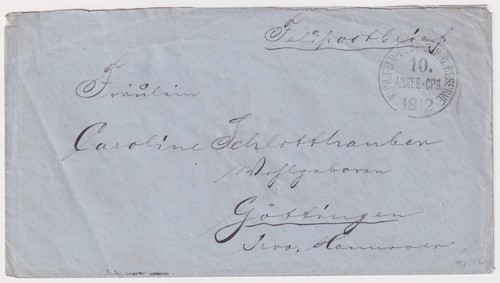 Feldpostbrief
10.
ARMEE-CPS.
18 12
Fräulein
Caroline Schlotthauber
Wohlgeboren
Göttingen
Prov. Hannover